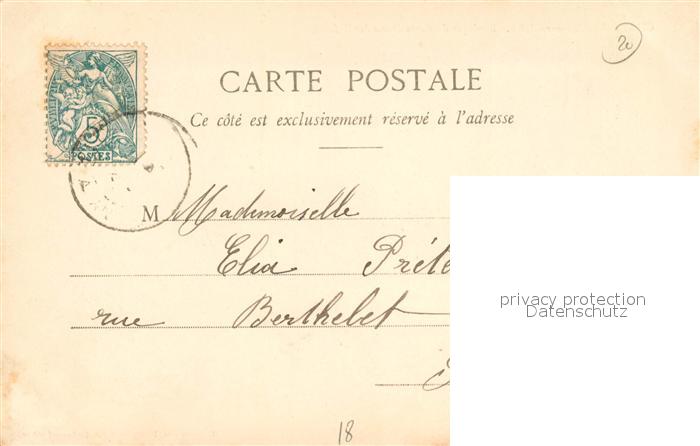 20
CARTE POSTALE
Ce côté est exclusivement réservé à l'adresse
5
POSTES
M Mademoiselle
Elia Préte
rue Berthelet
privacy protection
Datenschutz
18